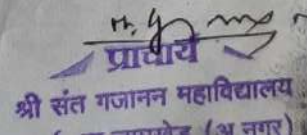 प्राचार्य
श्री संत गजानन महाविद्यालय
(अ.नगर)